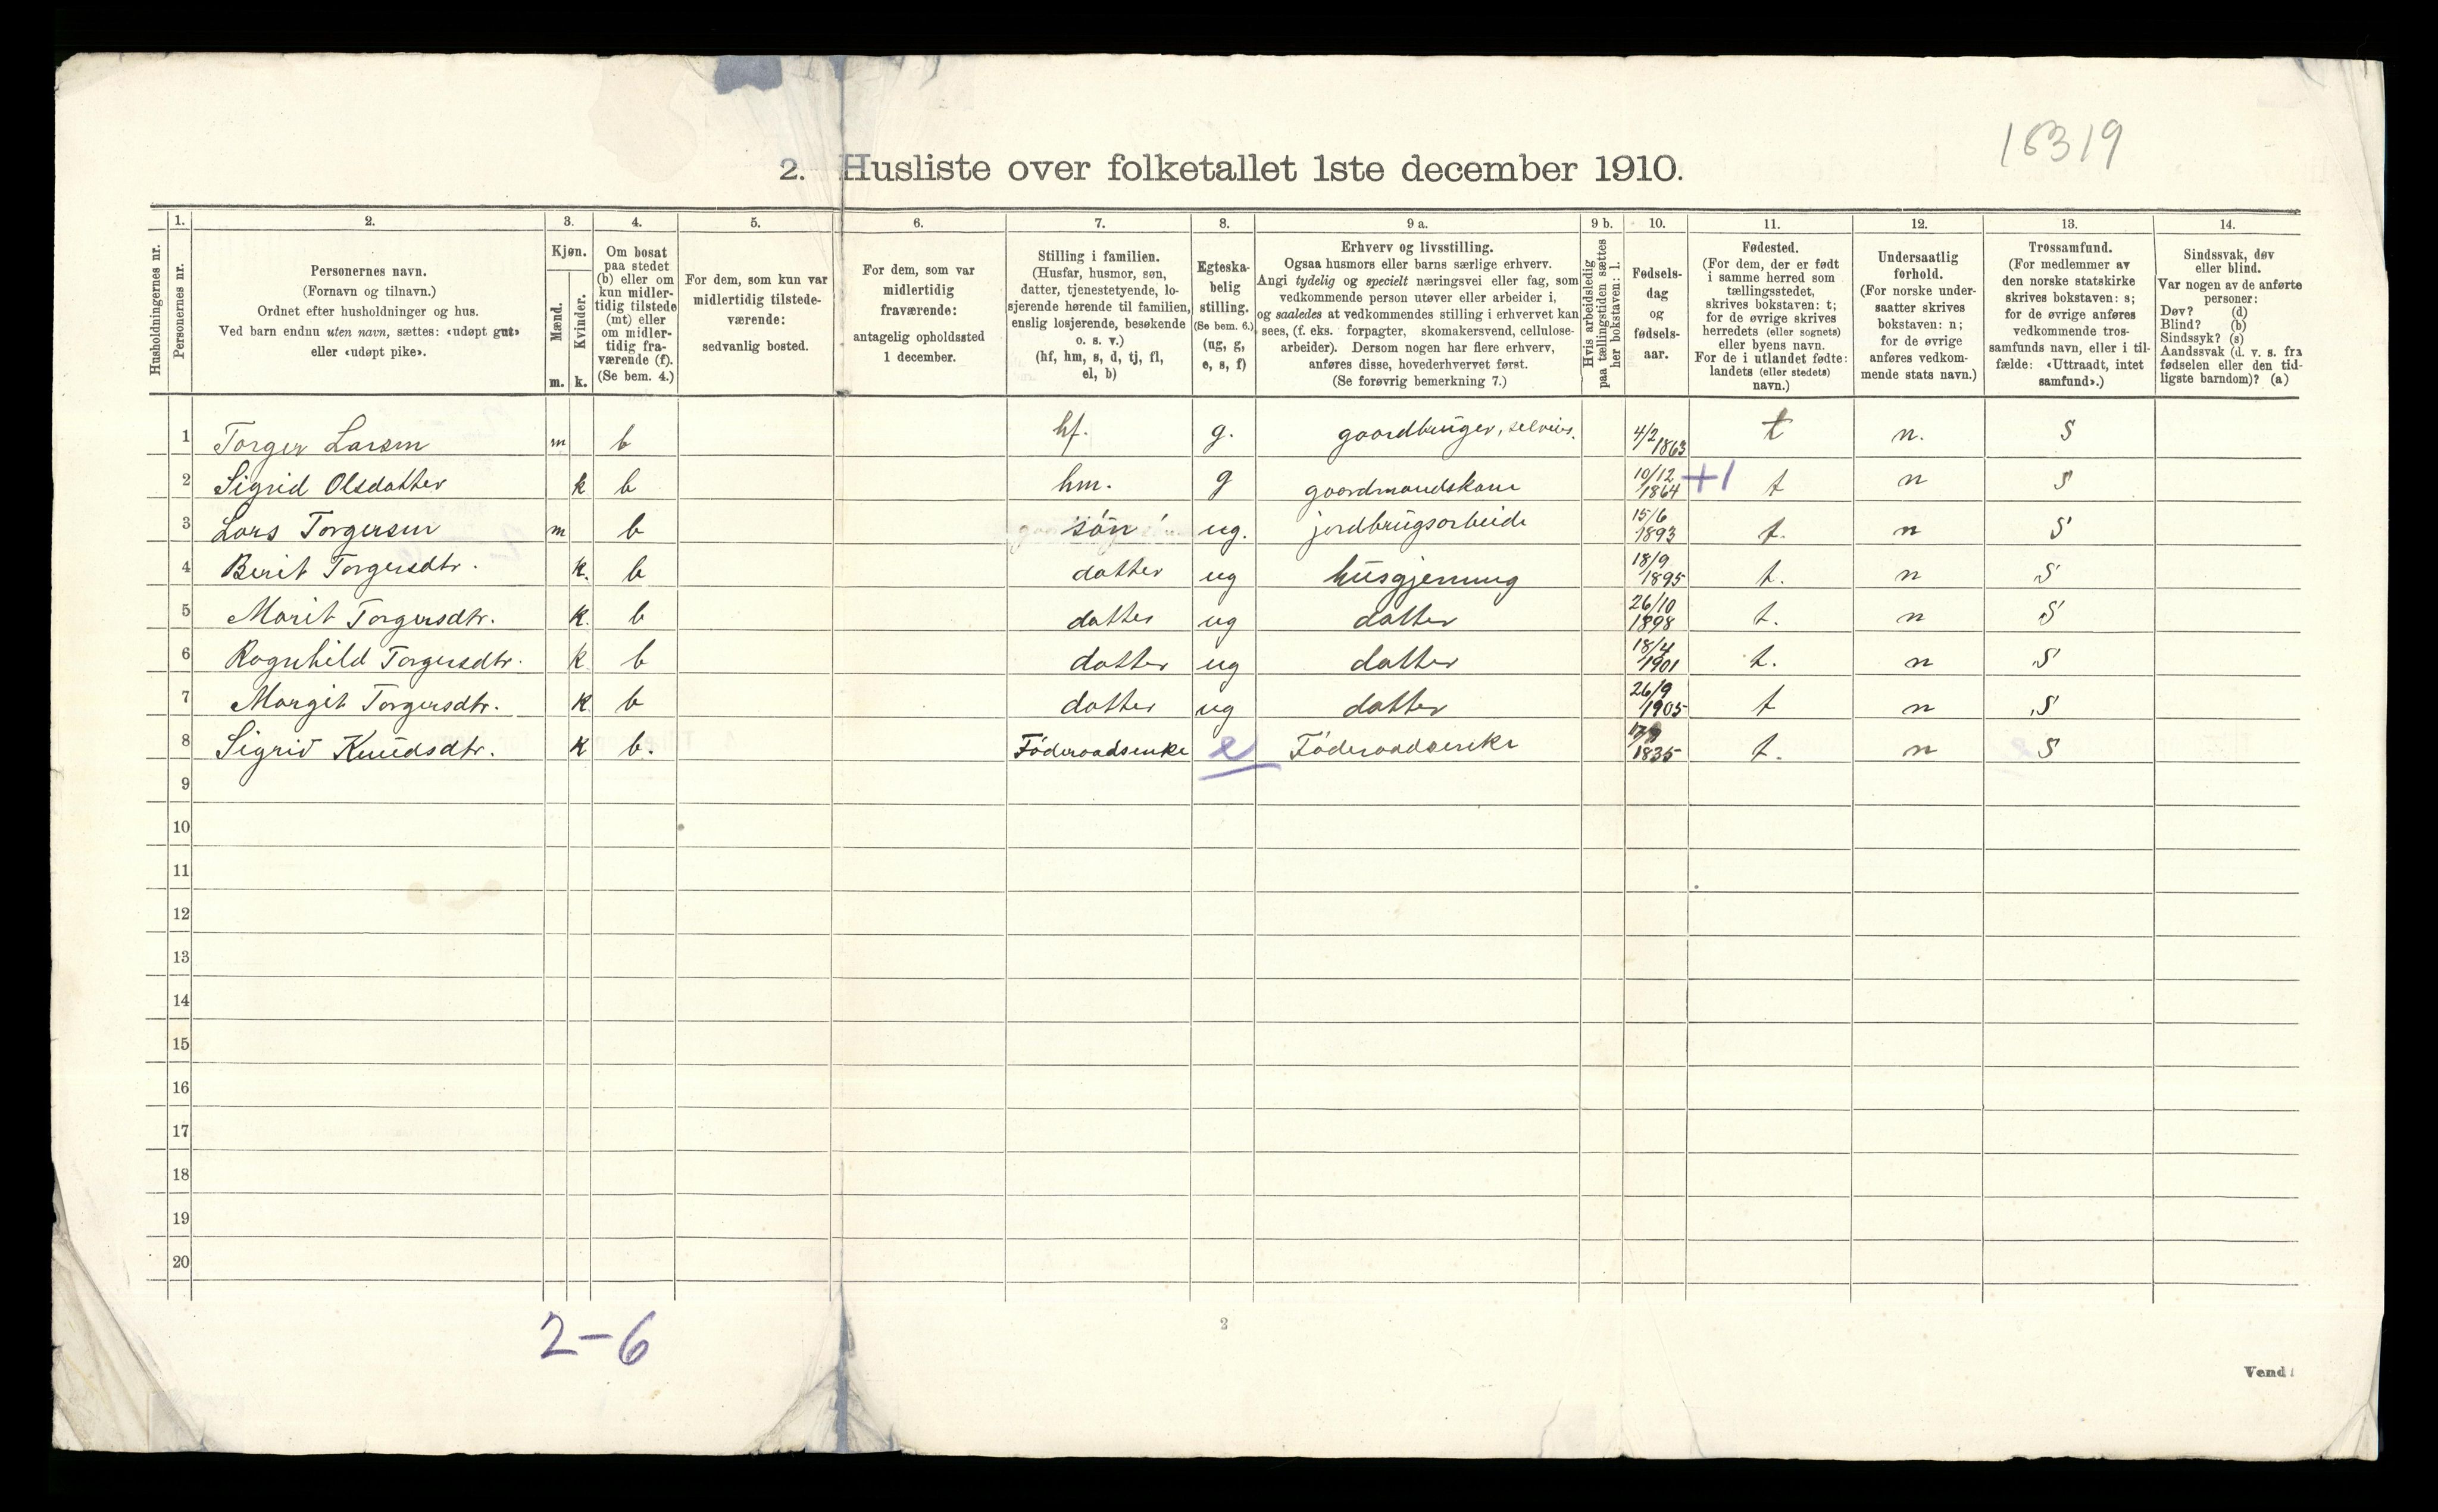 16319
2. Husliste over folketallet 1ste december 1910.
Husholdningernes nr.
1. Personernes nr.
2. Personernes navn.
(Fornavn og tilnavn.)
Ordnet efter husholdninger og hus.
Ved barn endnu uten navn, sættes: «udøpt gut»
eller «udøpt pike».
3. Kjøn.
Mænd. m.
Kvinder. k.
4. Om bosat
paa stedet
(b) eller om
kun midler-
tidig tilstede
(mt) eller
om midler-
tidig fra-
værende (f).
(Se bem. 4.)
5. For dem, som kun var
midlertidig tilstede-
værende:
sedvanlig bosted.
6. For dem, som var
midlertidig
fraværende:
antagelig opholdssted
1 december.
7. Stilling i familien.
(Husfar, husmor, søn,
datter, tjenestetyende, lo-
sjerende hørende til familien,
enslig losjerende, besøkende
o. s. v.)
(hf, hm, s, d, tj, fl,
el, b)
8. Egteska-
belig
stilling.
(Se bem. 6.)
(ug, g,
e, s, f)
9 a. Erhverv og livsstilling.
Ogsaa husmors eller barns særlige erhverv.
Angi tydelig og specielt næringsvei eller fag, som
vedkommende person utøver eller arbeider i,
og saaledes at vedkommendes stilling i erhvervet kan
sees, (f. eks. forpagter, skomakersvend, cellulose-
arbeider). Dersom nogen har flere erhverv,
anføres disse, hovederhvervet først.
(Se forøvrig bemerkning 7.)
9 b. Hvis arbeidsledig
paa tællingstiden sættes
her bokstaven: l.
10. Fødsels-
dag
og
fødsels-
aar.
11. Fødested.
(For dem, der er født
i samme herred som
tællingsstedet,
skrives bokstaven: t;
for de øvrige skrives
herredets (eller sognets)
eller byens navn.
For de i utlandet fødte:
landets (eller stedets)
navn.)
12. Undersaatlig
forhold.
(For norske under-
saatter skrives
bokstaven: n;
for de øvrige
anføres vedkom-
mende stats navn.)
13. Trossamfund.
(For medlemmer av
den norske statskirke
skrives bokstaven: s;
for de øvrige anføres
vedkommende tros-
samfunds navn, eller i til-
fælde: «Uttraadt, intet
samfund».)
14. Sindssvak, døv
eller blind.
Var nogen av de anførte
personer:
Døv? (d)
Blind? (b)
Sindssyk? (s)
Aandssvak (d. v. s. fra
fødselen eller den tid-
ligste barndom)? (a)
1 Torger Larsen m b hf. g. gaardbruger, selveier. 4/2 1863 t n. S
2 Sigrid Olsdatter k b hm. g gaardmandskone 10/12 1864 +1 t n S
3 Lars Torgersen m b søn ug. jordbrugsarbeide 15/6 1893 t. n S
4 Berit Torgersdtr. k. b datter ug husgjerning 18/9 1895 t. n S
5 Marit Torgersdtr. k. b datter ug datter 26/10 1898 t. n S
6 Ragnhild Torgersdtr. k b datter ug datter 18/4 1901 t. n S
7 Margit Torgersdtr. k b datter ug datter 26/9 1905 t n S
8 Sigrid Knudsdtr. k b. Føderaadsenke e Føderaadsenke 1835 t. n S
9
10
11
12
13
14
15
16
17
18
19
20
2-6
2
Vend!